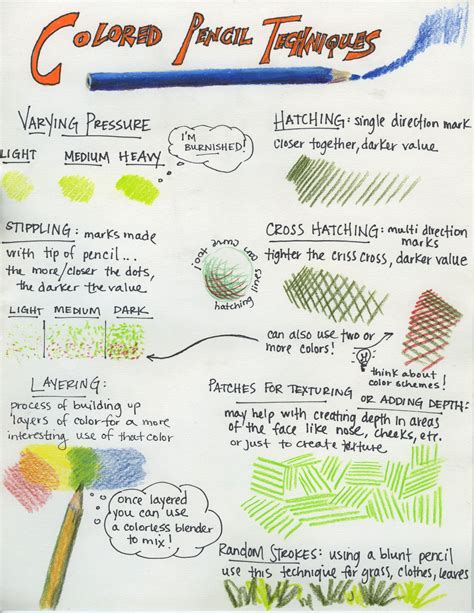 COLORED PENCIL TECHNIQUES
VARYING PRESSURE
LIGHT MEDIUM HEAVY
I'M
BURNISHED!
HATCHING: single direction mark
closer together, darker value
STIPPLING: marks made
with tip of pencil...
the more/closer the dots,
the darker the value
LIGHT MEDIUM DARK
can curve too!
hatching lines
CROSS HATCHING: multi direction
marks
tighter the criss cross, darker value
can also use two or
more colors!
think about
color schemes!
LAYERING:
process of building up
layers of color for a more
interesting use of that color
once layered
you can use
a colorless blender
to mix!
PATCHES FOR TEXTURING
OR ADDING DEPTH:
may help with creating depth in areas
of the face like nose, cheeks, etc.
or just to create texture
RANDOM STROKES: using a blunt pencil
use this technique for grass, clothes, leaves